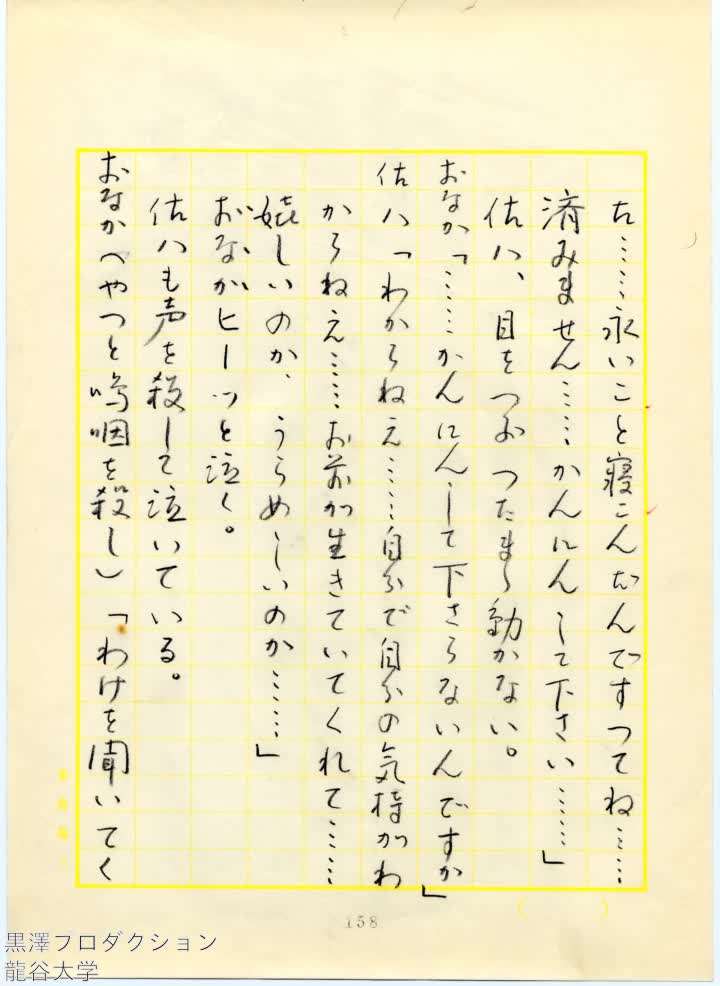 た……永いこと寝こんだんですつてね……
済みません……かんにんして下さい……」
佐八、目をつぶつたまゝ動かない。
おなか「……かんにんして下さらないんですか」
佐八「わからねえ……自分で自分の気持がわ
からねえ……お前が生きていてくれて……
嬉しいのか、うらめしいのか……」
おなかヒーッと泣く。
佐八も声を殺して泣いている。
おなか(やつと嗚咽を殺し)「わけを聞いてく
158
黒澤プロダクション
龍谷大学